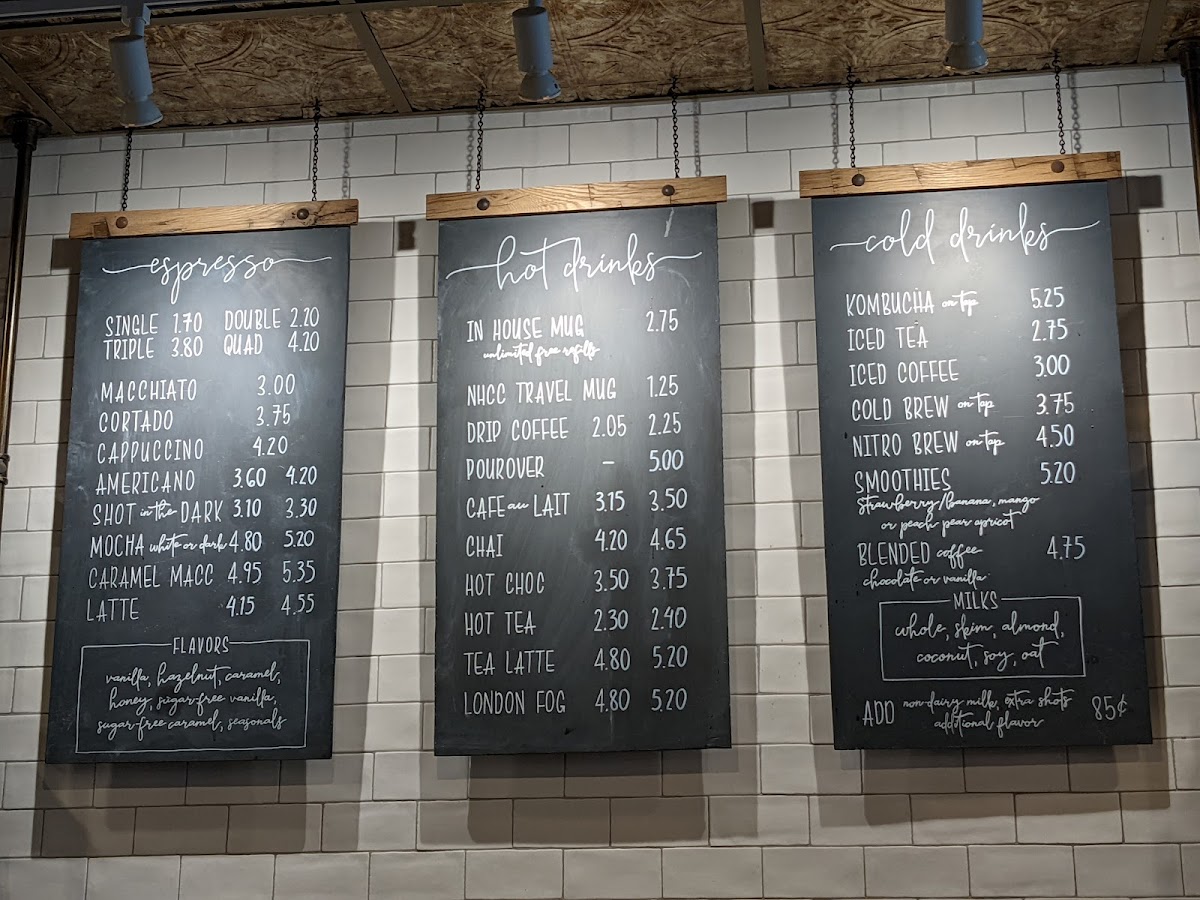 espresso
SINGLE 1.70 DOUBLE 2.20
TRIPLE 3.80 QUAD 4.20
MACCHIATO 3.00
CORTADO 3.75
CAPPUCCINO 4.20
AMERICANO 3.60 4.20
SHOT in the DARK 3.10 3.30
MOCHA white or dark 4.80 5.20
CARAMEL MACC 4.95 5.35
LATTE 4.15 4.55
FLAVORS
vanilla, hazelnut, caramel,
honey, sugar-free vanilla,
sugar-free caramel, seasonals
hot drinks
IN HOUSE MUG 2.75
unlimited free refills
NHCC TRAVEL MUG 1.25
DRIP COFFEE 2.05 2.25
POUROVER – 5.00
CAFE au LAIT 3.15 3.50
CHAI 4.20 4.65
HOT CHOC 3.50 3.75
HOT TEA 2.30 2.40
TEA LATTE 4.80 5.20
LONDON FOG 4.80 5.20
cold drinks
KOMBUCHA on-tap 5.25
ICED TEA 2.75
ICED COFFEE 3.00
COLD BREW on-tap 3.75
NITRO BREW on-tap 4.50
SMOOTHIES 5.20
strawberry/banana, mango
or peach pear apricot
BLENDED coffee 4.75
chocolate or vanilla
MILKS
whole, skim, almond,
coconut, soy, oat
ADD non-dairy milk, extra shots 85¢
additional flavor